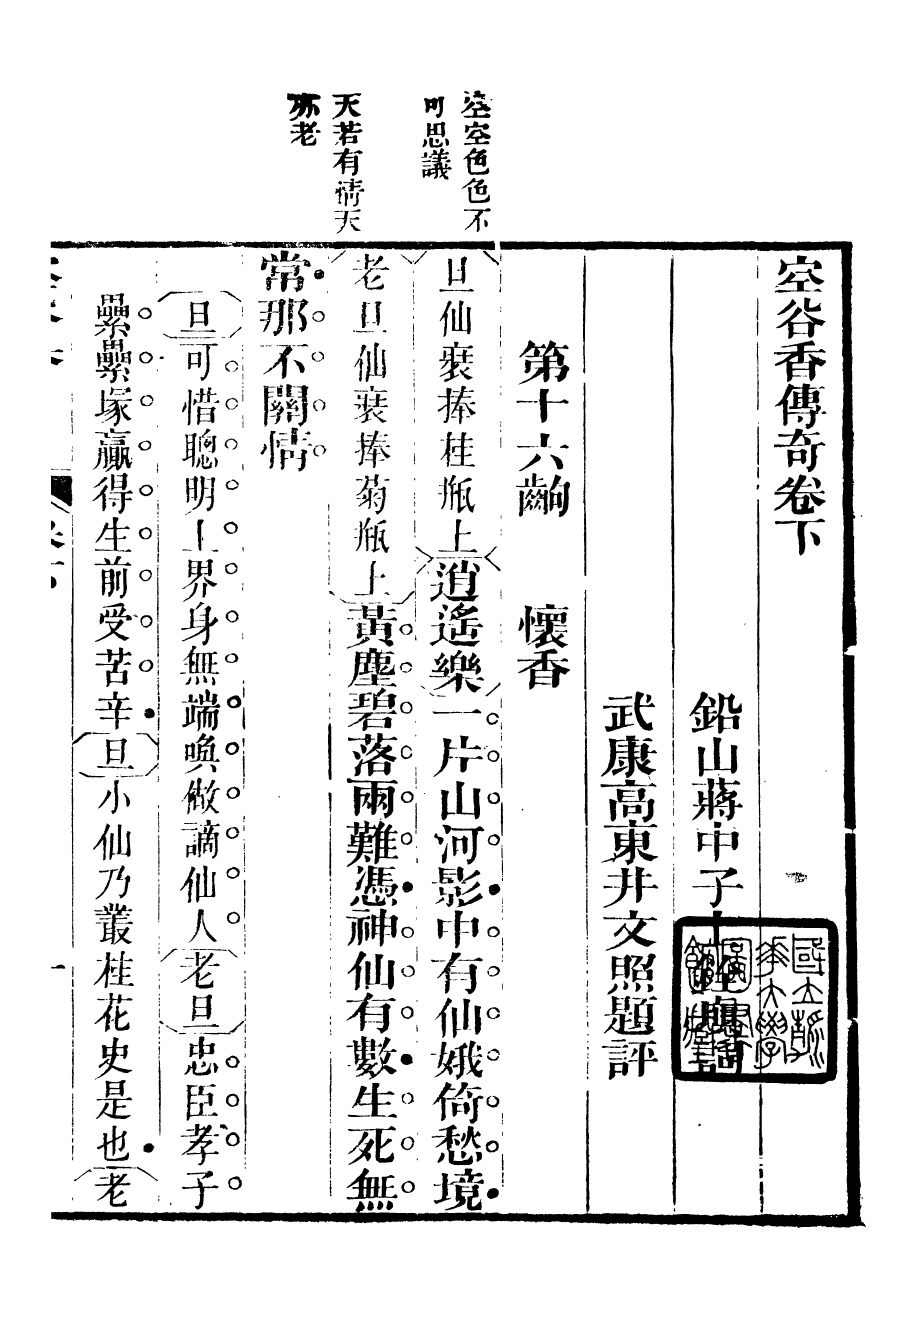 空空色色不
可思議
天若有情天
亦老
空谷香傳奇卷下
鉛山蔣中子士
武康高東井文照題評
第十六齣　懷香
旦仙裝捧桂瓶上逍遙樂一片山河影中有仙娥倚愁境
老旦仙裝捧菊瓶上黃塵碧落兩難憑神仙有數生死無
常那不關情
旦可惜聰明上界身無端喚做謫仙人老旦忠臣孝子
纍纍塚贏得生前受苦辛旦小仙乃叢桂花史是也老
一
國立清
華大學